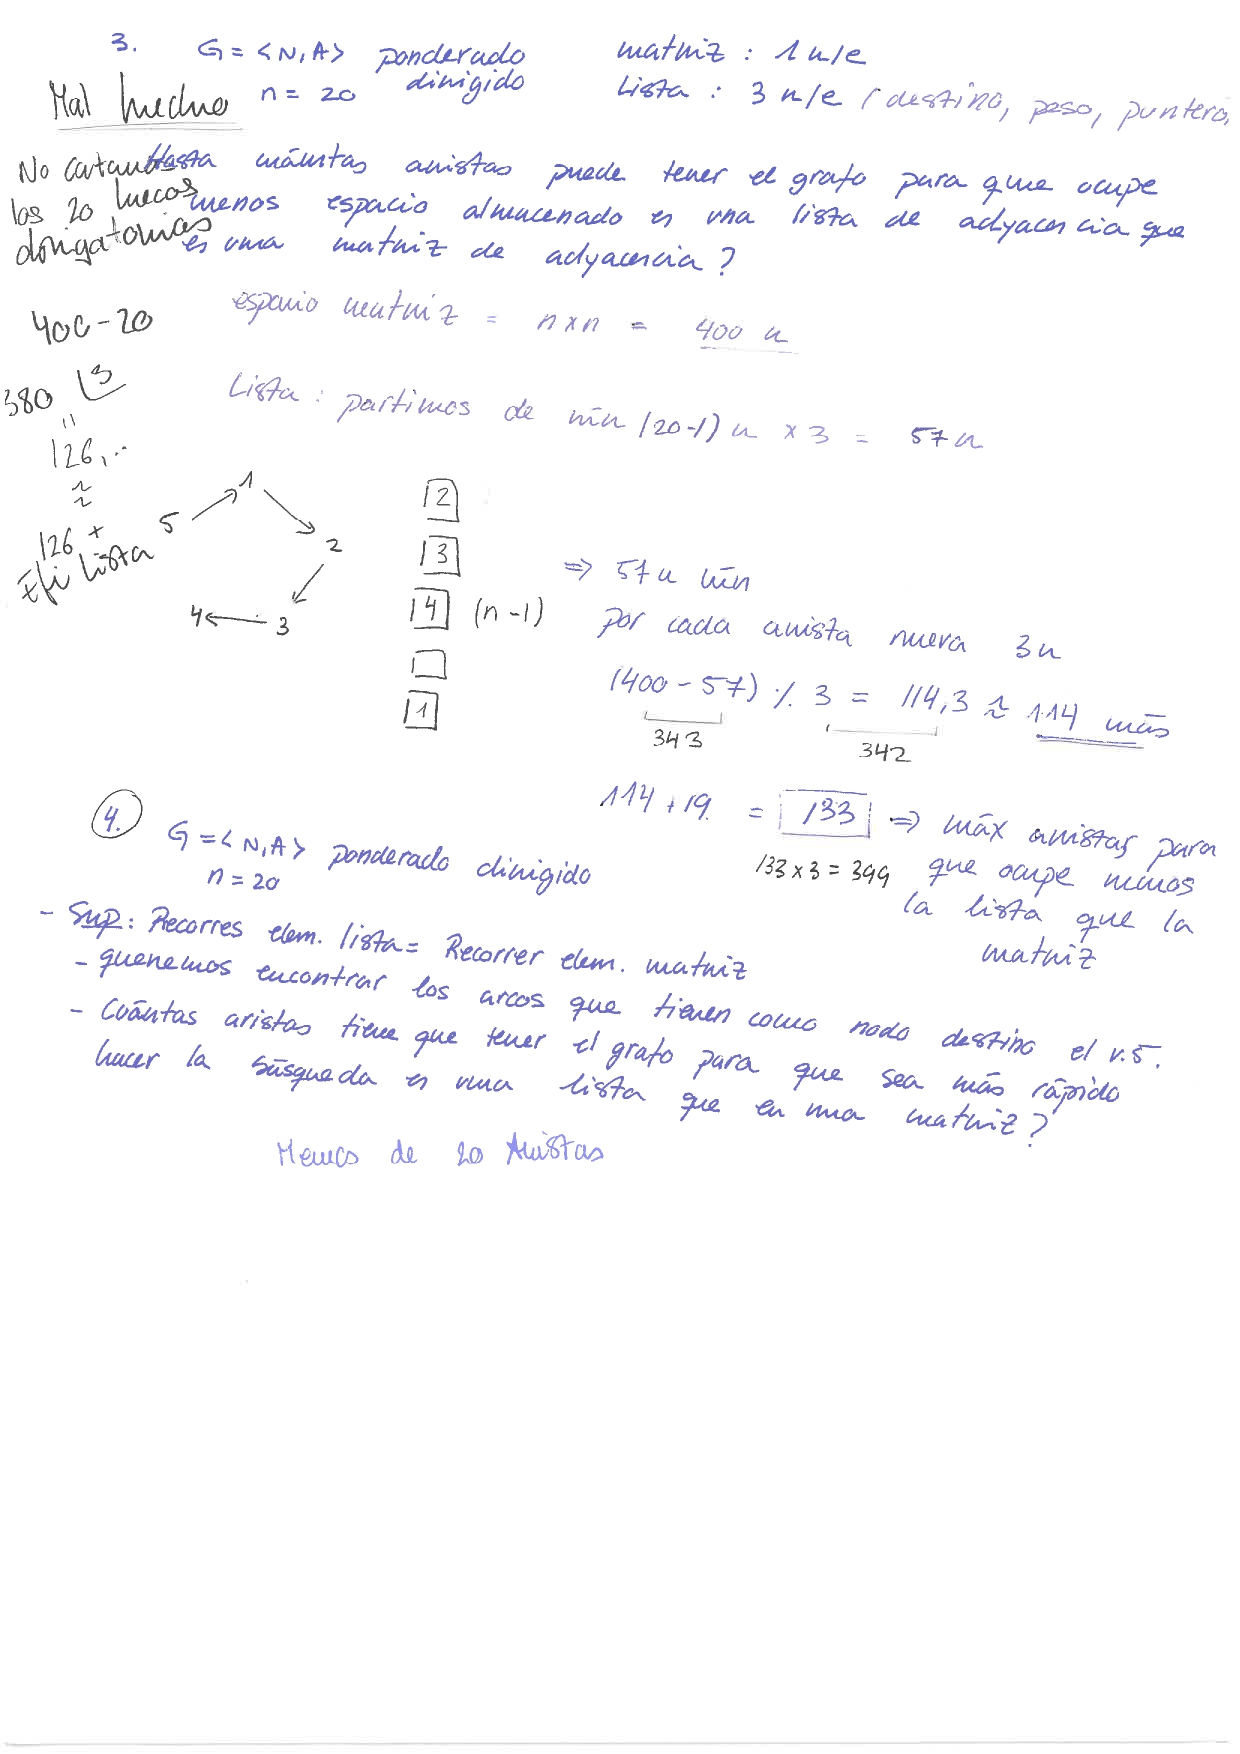 3. G = <N, A> ponderado dirigido
n = 20
matriz : 1 u/e
Lista : 3 u/e (destino, peso, puntero)
Mal hecho
No
los 20 huecos
obligatorios
Hasta cuántas aristas puede tener el grafo para que ocupe
menos espacio almacenado en una lista de adyacencia que
en una matriz de adyacencia?
400-20
380 | 3
"
126,..
≈
126 +
Efi Lista
espacio matriz = n x n = 400 u
Lista : partimos de mín (20-1) u x 3 = 57 u
5 1 2 3 4
2
3
4 (n-1)
1
=> 57 u mín
por cada arista nueva 3 u
(400 - 57) % 3 = 114,3 ≈ 114 más
343 342
114 + 19 = 133 => máx aristas para
133 x 3 = 399 que ocupe menos
la lista que la
matriz
4. G = <N, A> ponderado dirigido
n = 20
- Sup: Recorres elem. lista = Recorrer elem. matriz
- queremos encontrar los arcos que tienen como nodo destino el v.5.
- Cuántas aristas tiene que tener el grafo para que sea más rápido
hacer la búsqueda en una lista que en una matriz?
Menos de 20 Aristas